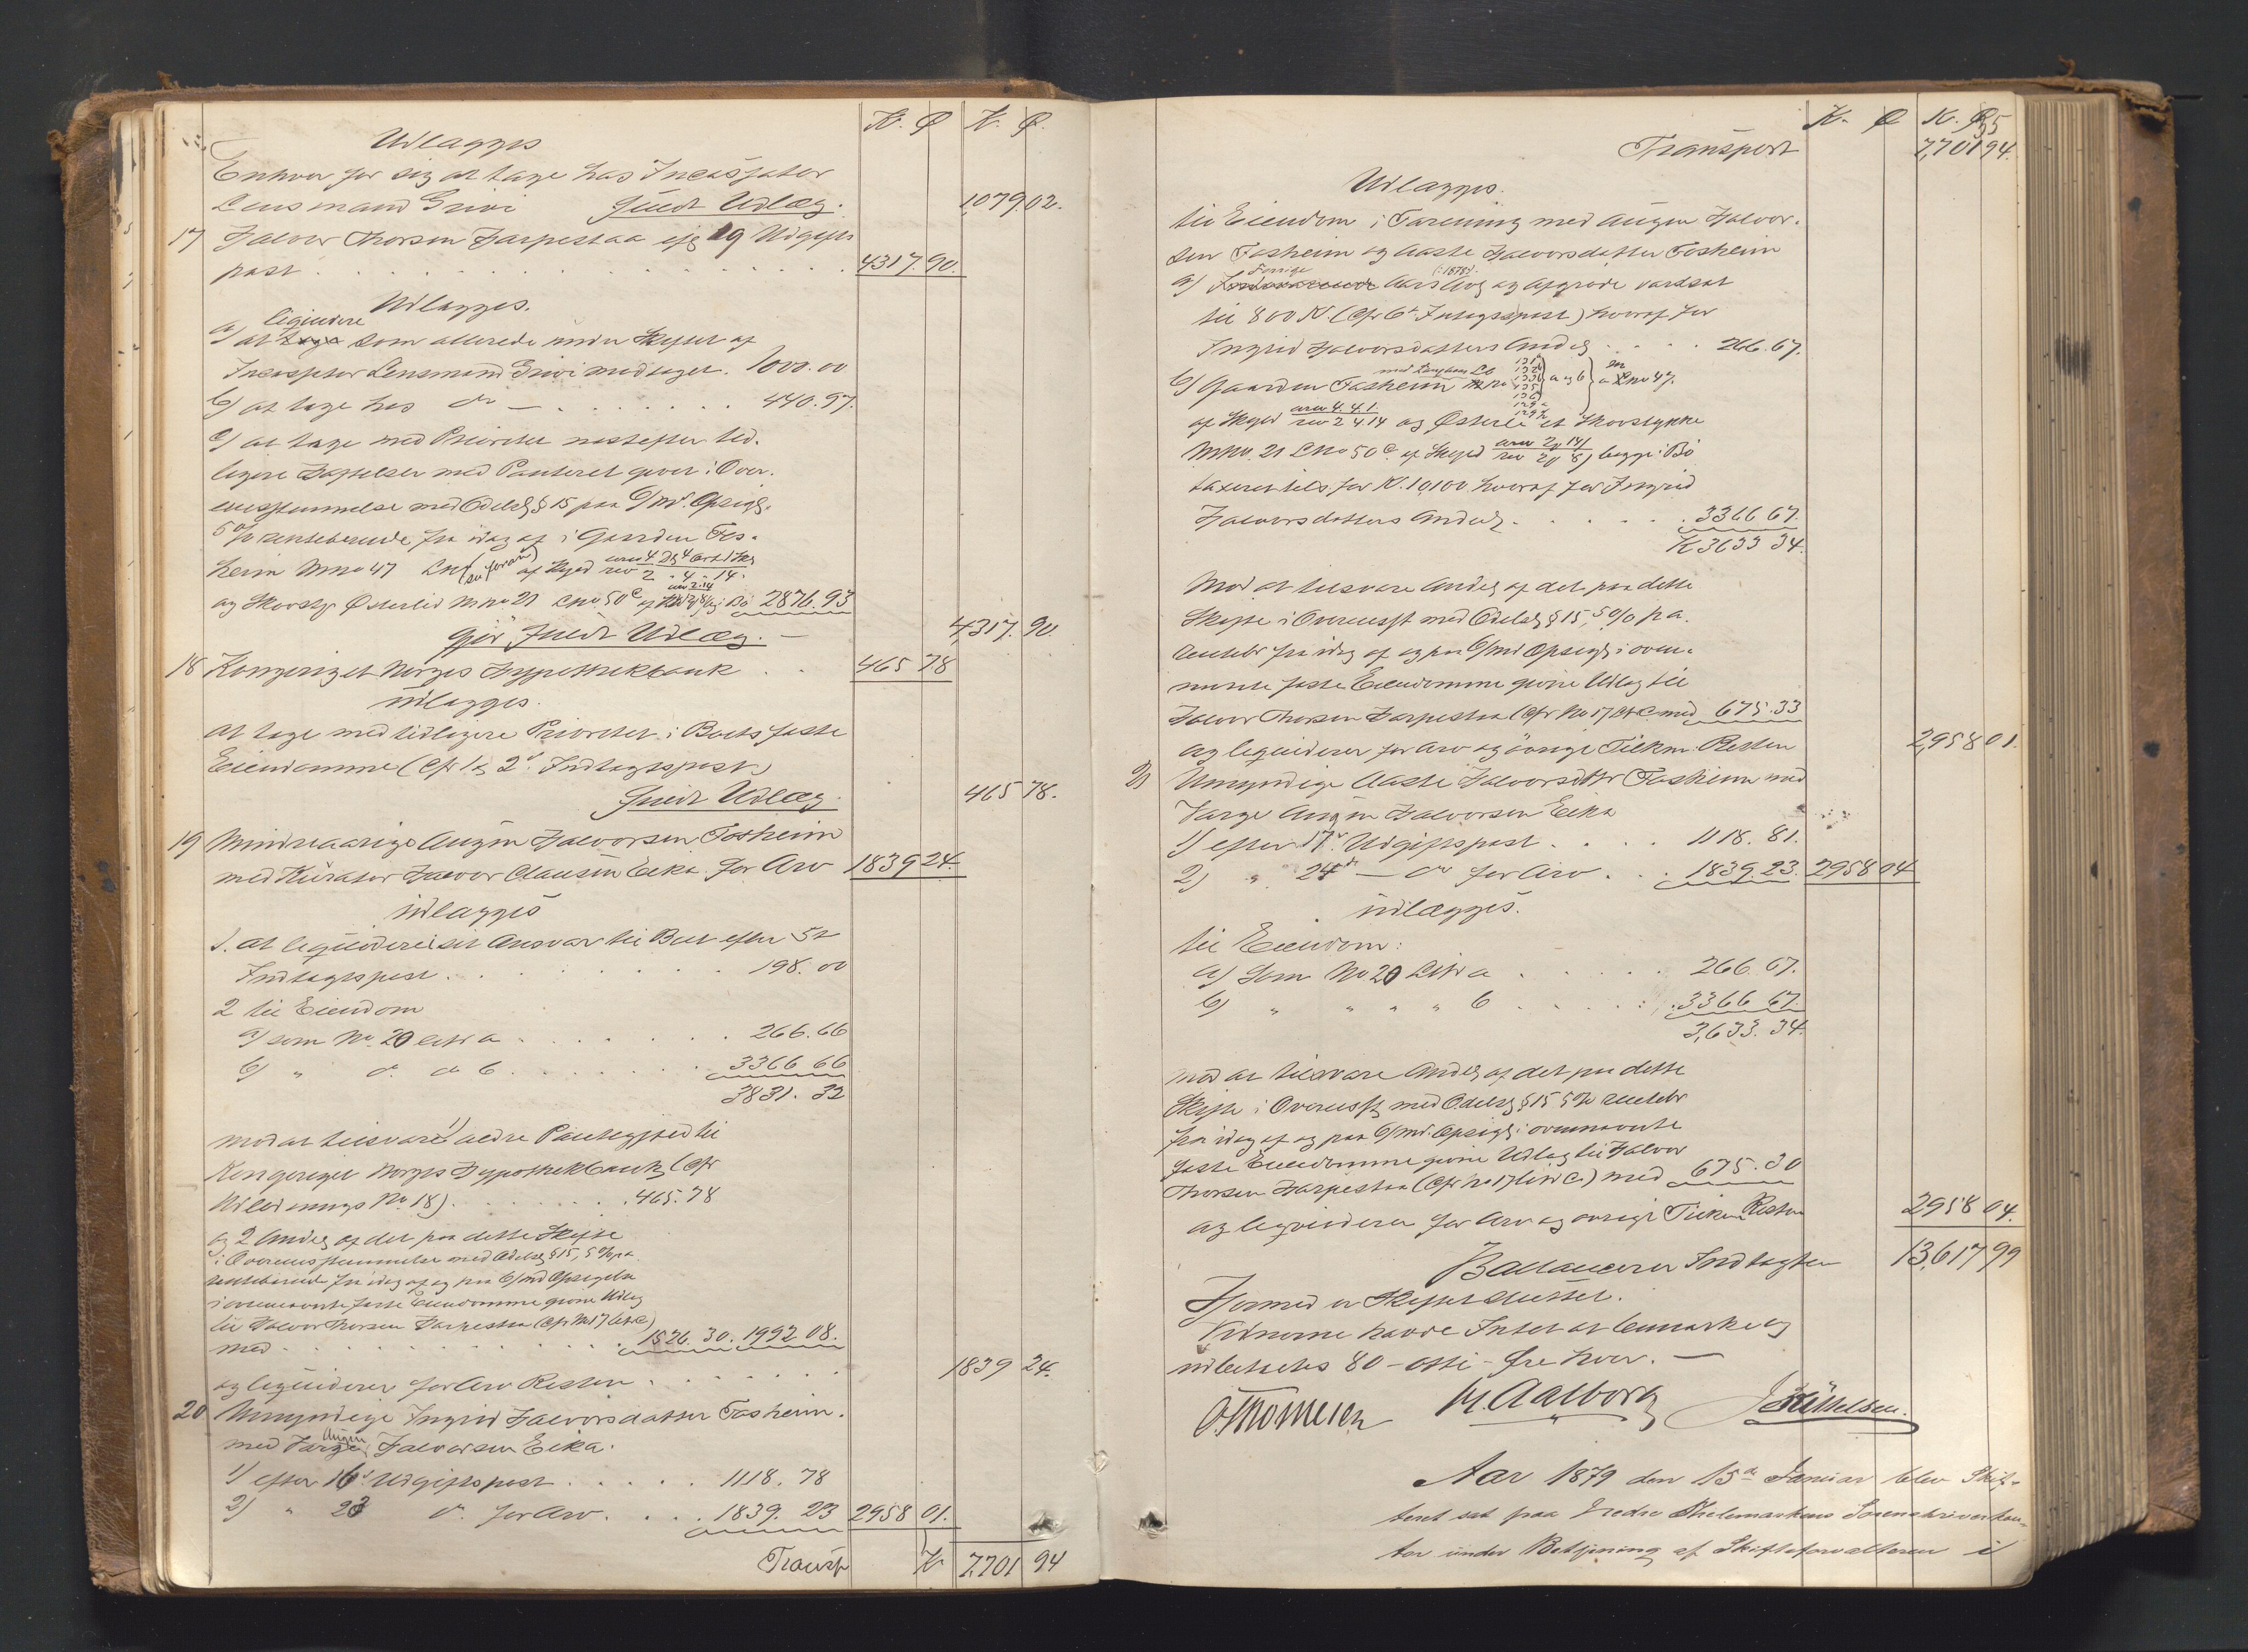 K. Ø K. Ø.
Udlægges
Enhver for sig at tage hos Incassator
Lensmand Grivi fuldt Udlæg. 1079.02.
17 Halvor Thorsen Harpestaa efter 19 Udgifts
post . . . . 4317.90.
Udlægges.
a) at liqvidere som allerede under Skiftet af
Incassator Lensmand Grivi modtaget. 1000.00
b) at tage hos do — . . . . 440.97.
c) at tage med Prioritet næstefter tid-
ligere Hæftelser med Panteret given i Over-
ensstemmelse med Odelsl § 15 paa 6/md. Opsigs.
5% rentebærende fra idag af i Gaarden Fos-
heim Mno 47 Lno (see foran) af Skyld urev 4 D 4 ort 1 sk
rev 2 - 4 - 14.
og Skovstp Østerlid Mno 21 Lno 50c af 2876.93
gjør fuldt Udlæg. — 4,317.90
18 Kongeriget Norges Hypothekbank . . 465 78
udlægges.
at tage med tidligere Prioritet i Boets faste
Eiendomme (cfr 1 & 2d Indtægtspost)
fuldt Udlæg 465 78.
19 Mindreaarige Augun Halvorsen Fosheim
med Kurator Halvor Clausen Eika for Arv 1839 24.
udlægges
1. at liqvidere sit Ansvar til Boet efter 5t
Indtægtspost . . . . 198.00
2 til Eiendom
a) som No 20 litr a . . . . 266.66
b) " do do b . . . . 3366 66
3831. 32
mod at tilsvare 1) ældre Pantegjæld til
Kongeriget Norges Hypothekbank (cfr
Udlodnings No 18) . . . . 465.78
og 2 Andel af det paa dette Skifte
i Overensstemmelse med Odelsl § 15, 5% pa
rentebærende fra idag af og paa 6/md Opsigelse
i ovennævnte faste Eiendomme givne Udlæg
til Halvor Thorsen Harpestaa (cfr No 17 litr c)
med . . . . 1526.30. 1992 08.
og liqviderer for Arv Resten . . . . 1839 24.
20 Umyndige Ingrid Halvorsdatter Fosheim.
med Værge Augun Halvorsen Eika.
1) efter 16d Udgiftspost . . . . 1118. 78
2) " 23 do for Arv. . . . 1839. 23 2958 01.
Transp K 7,701 94
K. Ø K. Ø
35
Transport 7,701 94.
Udlægges.
til Eiendom i Forening med Augun Halvor-
sen Fosheim og Aaste Halvorsdatter Fosheim
a) Forrige Aars (: 1878) Avl og Afgrøde værdsat
til 800 K. (cfr 6t Indtægtspost) hvoraf for
Ingrid Halvorsdatters Andel . . . . 266.67.
b) Gaarden Fosheim a og b Mno 47.
af Skyld urev 4. 4. 1.
rev 2 4 14 og Østerli et Skovstykke
Mno. 21 Lno 50c af Skyld begge i Bø
taxeret tils. for K. 10,100 hvoraf for Ingrid
Halvorsdatters Andel . . . . 3366 67.
K 3633 34.
Mod at tilsvare Andel af det paa dette
Skifte i Overensst med Odelsl § 15, 5% pa.
rentebr fra idag af og paa 6/md Opsigs i oven-
nævnte faste Eiendomme givne Udlæg til
Halvor Thorsen Harpestaa (cfr No 17 litr c med 675.33
og liqviderer for Arv og øvrige Tilkm. Resten 2,958 01.
21 Umyndige Aaste Halvorsdtr Fosheim med
Værge Augun Halvorsen Eika
1) efter 17d Udgiftspost . . . . 1118. 81.
2) " 24d — do for Arv . . 1839.23. 2958 04
udlægges.
til Eiendom:
a) som No 20 Litr a . . . . 266.67.
b) " " " " b . . . . 3366 67.
3,633. 34.
mod at tilsvare Andel af det paa dette
Skifte i Overensst med Odelsl § 15 5% rentebr
fra idag af og paa 6/md. Opsigs i ovennævnte
faste Eiendomme givne Udlæg til Halvor
Thorsen Harpestaa (cfr No 17 litr c.) med 675.30
og liqviderer for Arv og øvrige Tilkm Resten 2958 04.
Ballancerer Indtægten 13,617 99
Hermed er Skiftet sluttet.
Vidnerne havde Intet at bemærke og
udbetaltes 80 - otti - Øre hver. —
O. Thomesen M. Aalborg
Aar 1879 den 15de Januar blev Skif-
teret sat paa Nedre Thelemarkens Sorenskriverkon-
tor under Betjening af Skifteforvalteren i